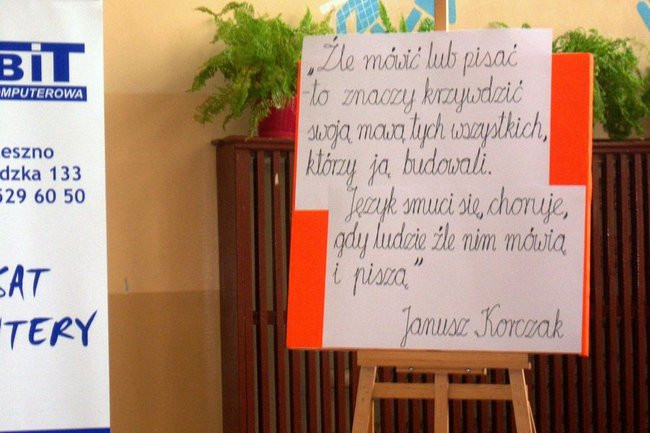 BiT
OMPUTEROWA
eszno
dzka 133
529 60 50
SAT
TERY
„Źle mówić lub pisać
-to znaczy krzywdzić
swoją mową tych wszystkich,
którzy ją budowali.
Język smuci się, choruje,
gdy ludzie źle nim mówią
i piszą”
Janusz Korczak